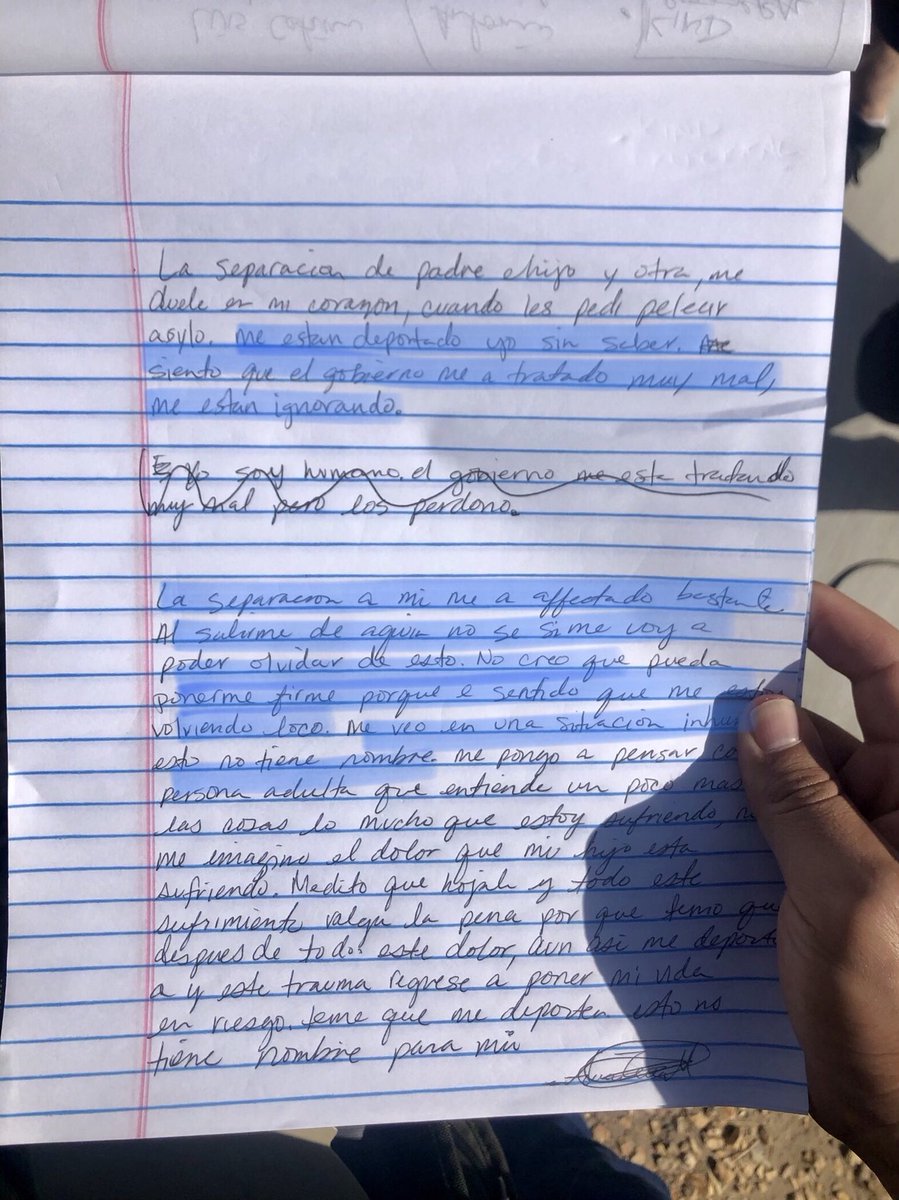 KIND
La separacion de padre e hijo y otra, me
duele en mi corazon, cuando les pedi pelear
asylo. me estan deportado yo sin saber. Me
siento que el gobierno me a tratado muy mal,
me estan ignorando.
Yo soy humano. el gobierno me esta tratando
muy mal pero los perdono.
La separacion a mi me a affectado bastante.
Al salirme de aqui no se si me voy a
poder olvidar de esto. No creo que pueda
ponerme firme porque e sentido que me estoy
volviendo loco. Me veo en una situacion
esto no tiene nombre. me pongo a pensar
persona adulta que entiende un poco mas
las cosas lo mucho que estoy sufriendo,
me imagino el dolor que mi hijo esta
sufriendo. Medito que hojala y todo este
sufrimiento valga la pena por que temo que
despues de todo este dolor, aun asi me
a y este trauma regrese a poner mi vida
en riesgo. teme que me deporten esto no
tiene nombre para mi